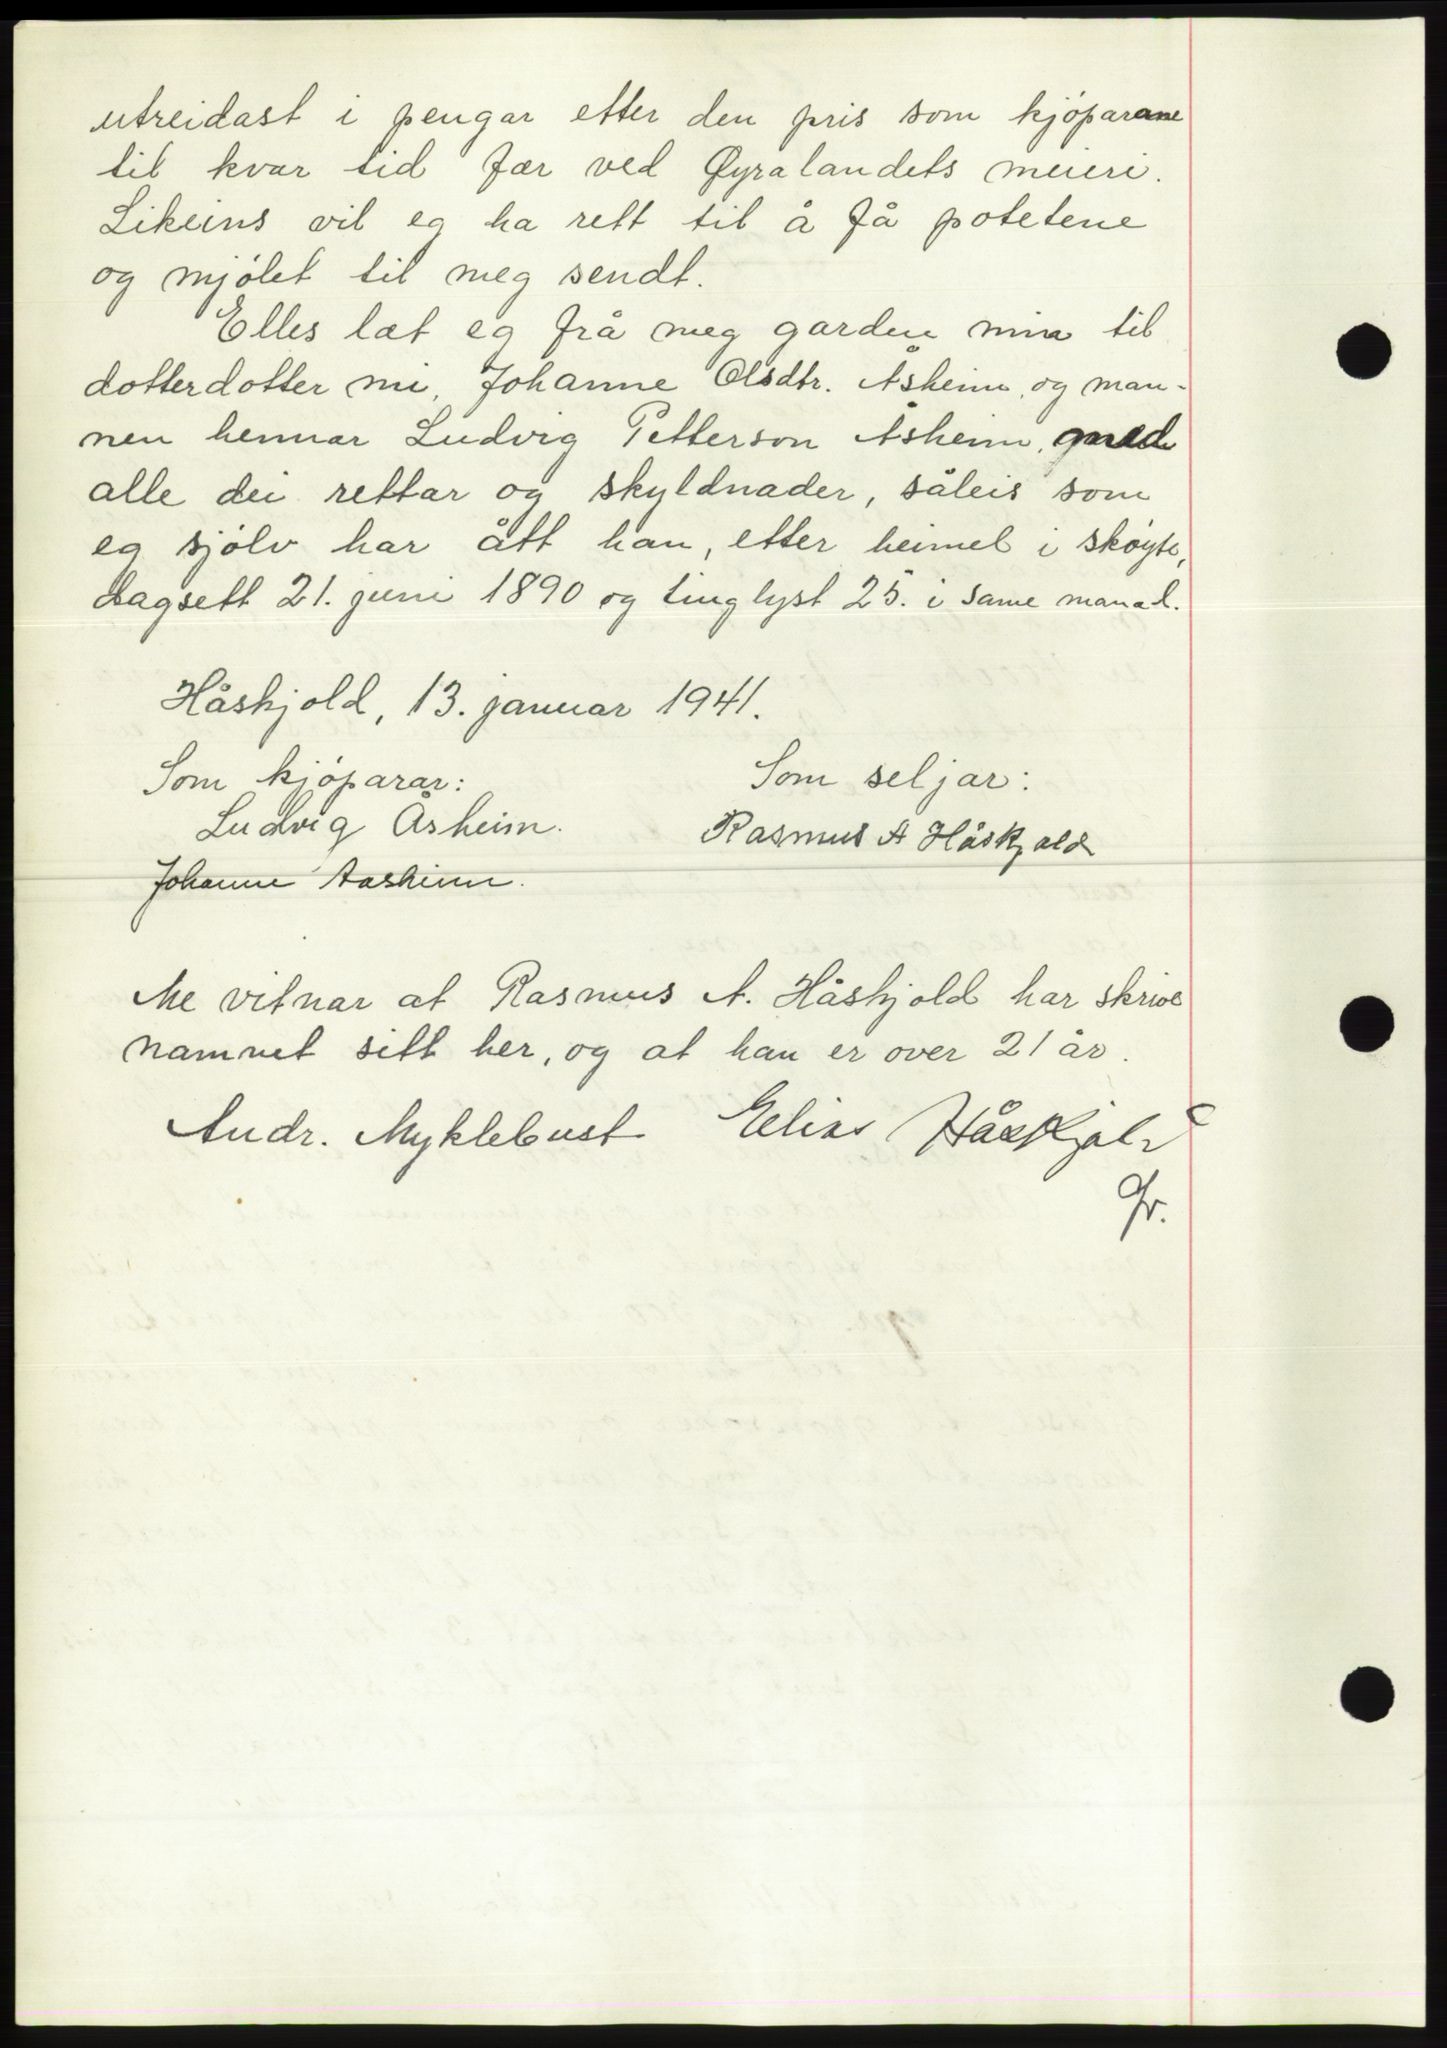 utreidast i pengar etter den pris som kjøparane
til kvar tid fær ved Øyralandets meieri.
Likeins vil eg ha rett til å få potetene
og mjølet til meg sendt.
Elles læt eg frå meg garden min til
dotterdotter mi, Johanne Olsdtr. Åsheim, og man-
nen hennar Ludvig Petterson Åsheim, med
alle dei rettar og skyldnader, såleis som
eg sjølv har ått han, etter heimel i skøyte,
dagsett 21. juni 1890 og tinglyst 25. i same månad.
Håskjold, 13. januar 1941.
Som kjøparar: Som seljar:
Ludvig Åsheim. Rasmus A Håskjold
Johanne Aasheim.
Me vitnar at Rasmus A. Håskjold har skrive
namnet sitt her, og at han er over 21 år.
Andr. Myklebust Elias Håskjold